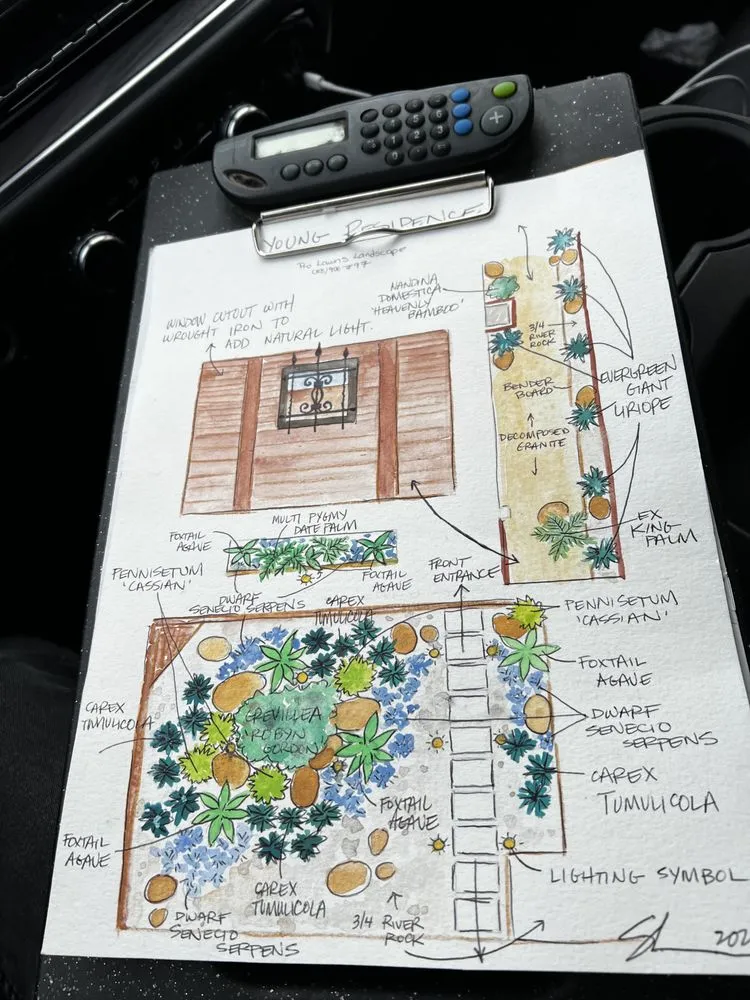 YOUNG RESIDENCE
Pro Lawns Landscape
WINDOW CUTOUT WITH
WROUGHT IRON TO
ADD NATURAL LIGHT.
NANDINA
DOMESTICA
'HEAVENLY
BAMBOO'
3/4
RIVER
ROCK
BENDER
BOARD
DECOMPOSED
GRANITE
EVERGREEN
GIANT
LIRIOPE
EX
KING
PALM
MULTI PYGMY
DATE PALM
FOXTAIL
AGAVE
FOXTAIL
AGAVE
DWARF
SENECIO SERPENS
FRONT
ENTRANCE
PENNISETUM
'CASSIAN'
CAREX
TUMULICOLA
PENNISETUM
'CASSIAN'
FOXTAIL
AGAVE
DWARF
SENECIO
SERPENS
CAREX
TUMULICOLA
CAREX
TUMULICOLA
GREVILLEA
ROBYN
GORDON
FOXTAIL
AGAVE
FOXTAIL
AGAVE
CAREX
TUMULICOLA
DWARF
SENECIO
SERPENS
3/4 RIVER
ROCK
LIGHTING SYMBOL